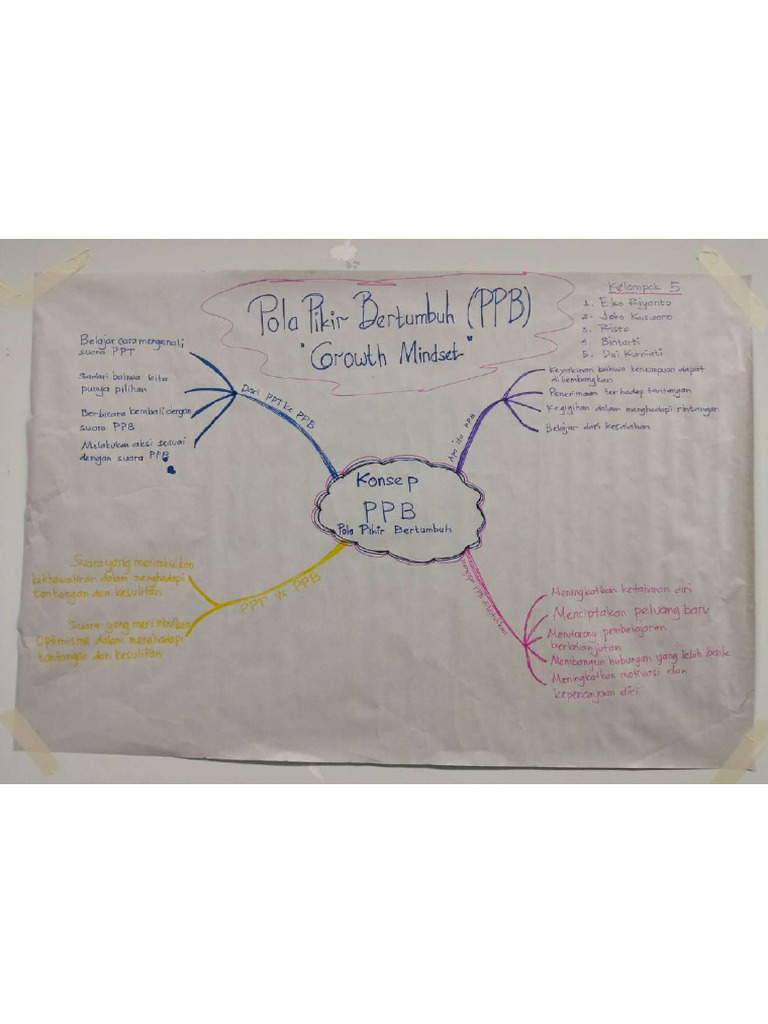 Pola Pikir Bertumbuh (PPB)
"Growth Mindset"
Kelompok 5
1. Eko Riyanto
2. Joko Kusworo
3. Risto
4. Bintarti
5. Dwi Kurniati
Belajar cara mengenali
suara PPT
Sadari bahwa kita
punya pilihan
Berbicara kembali dengan
suara PPB
Melakukan aksi sesuai
dengan suara PPB
Dari PPT ke PPB
Apa itu PPB
Keyakinan bahwa kemampuan dapat
dikembangkan
Penerimaan terhadap tantangan
Kegigihan dalam menghadapi rintangan
Belajar dari kesalahan
Konsep
PPB
Pola Pikir Bertumbuh
Suara yang menimbulkan
kekhawatiran dalam menghadapi
tantangan dan kesulitan
Suara yang menimbulkan
Optimisme dalam menghadapi
tantangan dan kesulitan
PPT vs PPB
PPB dibutuhkan
Meningkatkan ketahanan diri
Menciptakan peluang baru
Mendorong pembelajaran
berkelanjutan
Membangun hubungan yang lebih baik
Meningkatkan motivasi dan
kepercayaan diri